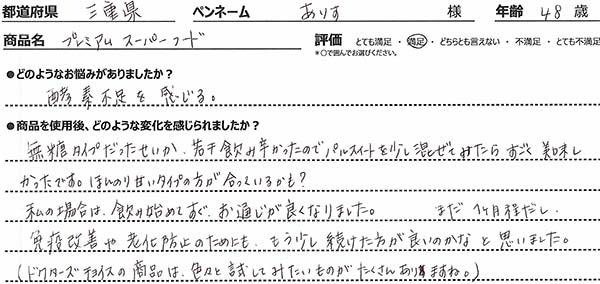 都道府県 三重県 ペンネーム ありす 様 年齢 48 歳
商品名 プレミアム スーパーフード 評価 とても満足 ・ 満足 ・ どちらとも言えない ・ 不満足 ・ とても不満足
*○で囲んでお選びください。
●どのようなお悩みがありましたか？
酵素不足を感じる。
●商品を使用後、どのような変化を感じられましたか？
無糖タイプだったせいか、若干飲み辛かったのでパルスイートを少し混ぜてみたらすごく美味し
かったです。ほんのり甘いタイプの方が合っているかも？
私の場合は、飲み始めてすぐ、お通じが良くなりました。 まだ1ヶ月程だし、
免疫改善や老化防止のためにも、もう少し続けた方が良いのかなと思いました。
(ドクターズチョイスの商品は、色々と試してみたいものがたくさんありますね。)